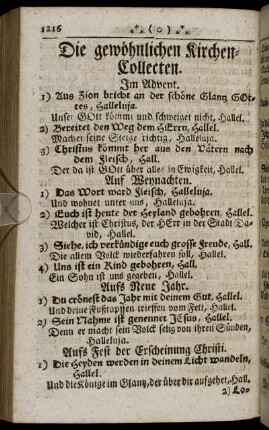 1216 (o)
Die gewöhnlichen Kirchen-
Collecten.
Im Advent.
1) Aus Zion bricht an der schöne Glantz GOt-
tes, Halleluja.
Unser GOtt kömmt und schweiget nicht, Hallel.
2) Bereitet den Weg dem HErrn, Hallel.
Machet seine Steige richtig, Halleluja.
3) Christus kömmt her aus den Vätern nach
dem Fleisch, Hall.
Der da ist GOtt über alles in Ewigkeit, Hallel.
Auf Weynachten.
1) Das Wort ward Fleisch, Halleluja.
Und wohnet unter uns, Halleluja.
2) Euch ist heute der Heyland gebohren, Hallel.
Welcher ist Christus, der HErr in der Stadt Da-
vid, Hallel.
3) Siehe, ich verkündige euch grosse Freude, Hall.
Die allem Volck wiederfahren soll, Hallel.
4) Uns ist ein Kind gebohren, Hall.
Ein Sohn ist uns gegeben, Hallel.
Aufs Neue Jahr.
1) Du crönest das Jahr mit deinem Gut, Hallel.
Und deine Fußtapffen trieffen vom Fett, Hallel.
2) Sein Nahme ist genennet JEsus, Hallel.
Denn er macht sein Volck selig von ihren Sünden,
Halleluja.
Aufs Fest der Erscheinung Christi.
1) Die Heyden werden in deinem Licht wandeln,
Hallel.
Und die Könige im Glantz, der über dir aufgehet, Hall.
2) Lo-